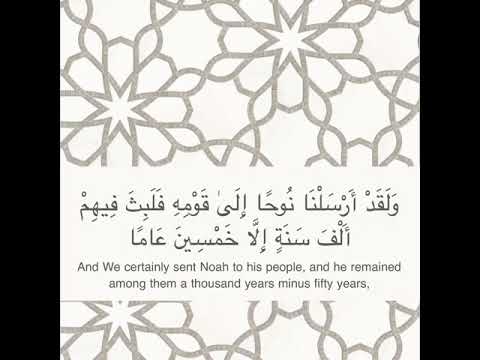 وَلَقَدْ أَرْسَلْنَا نُوحًا إِلَىٰ قَوْمِهِ فَلَبِثَ فِيهِمْ
أَلْفَ سَنَةٍ إِلَّا خَمْسِينَ عَامًا
And We certainly sent Noah to his people, and he remained
among them a thousand years minus fifty years,